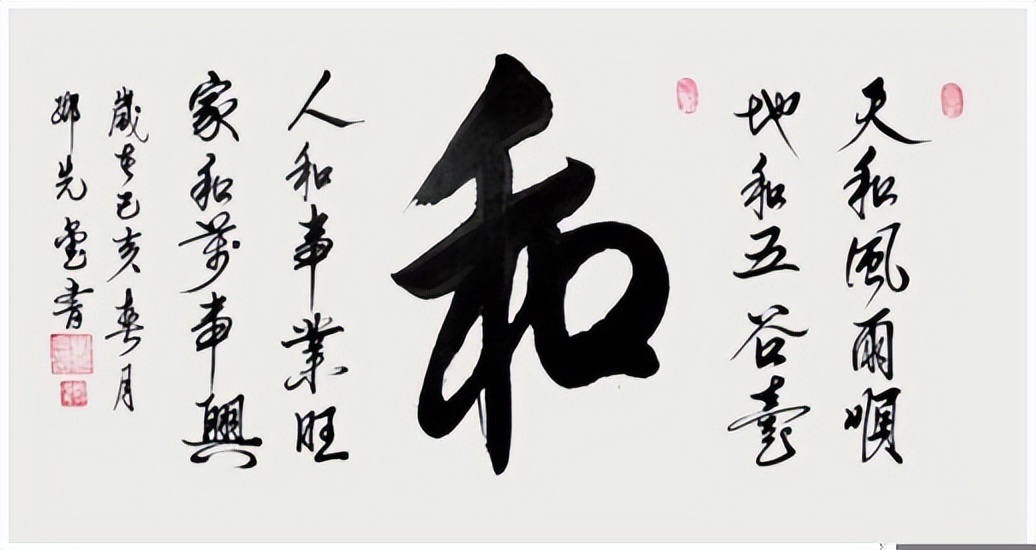 天和風雨順
地和五谷豐
和
人和事業旺
家和萬事興
歲在己亥春月
先堂書